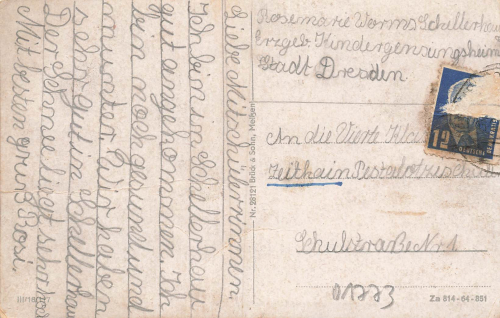 Liebe Mitschülerinnen.
Ich bin in Schellerhau
gut angekommen. Ich
bin noch gesund und
munter. Wir haben
sehr gut in Schellerhau
Der Schnee liegt sehr hoch
Mit besten gruß Rosi.
Rosemarie Worms Schellerhau
Erzgeb Kindergenesungsheim
Stadt Dresden
An die Vierte Kla
Zeithain Pestalozzischul
Schulstraße Nr 1
01773
Nr. 26121 Brück & Sohn, Meißen
III/18/197
Za 814-64-851
12